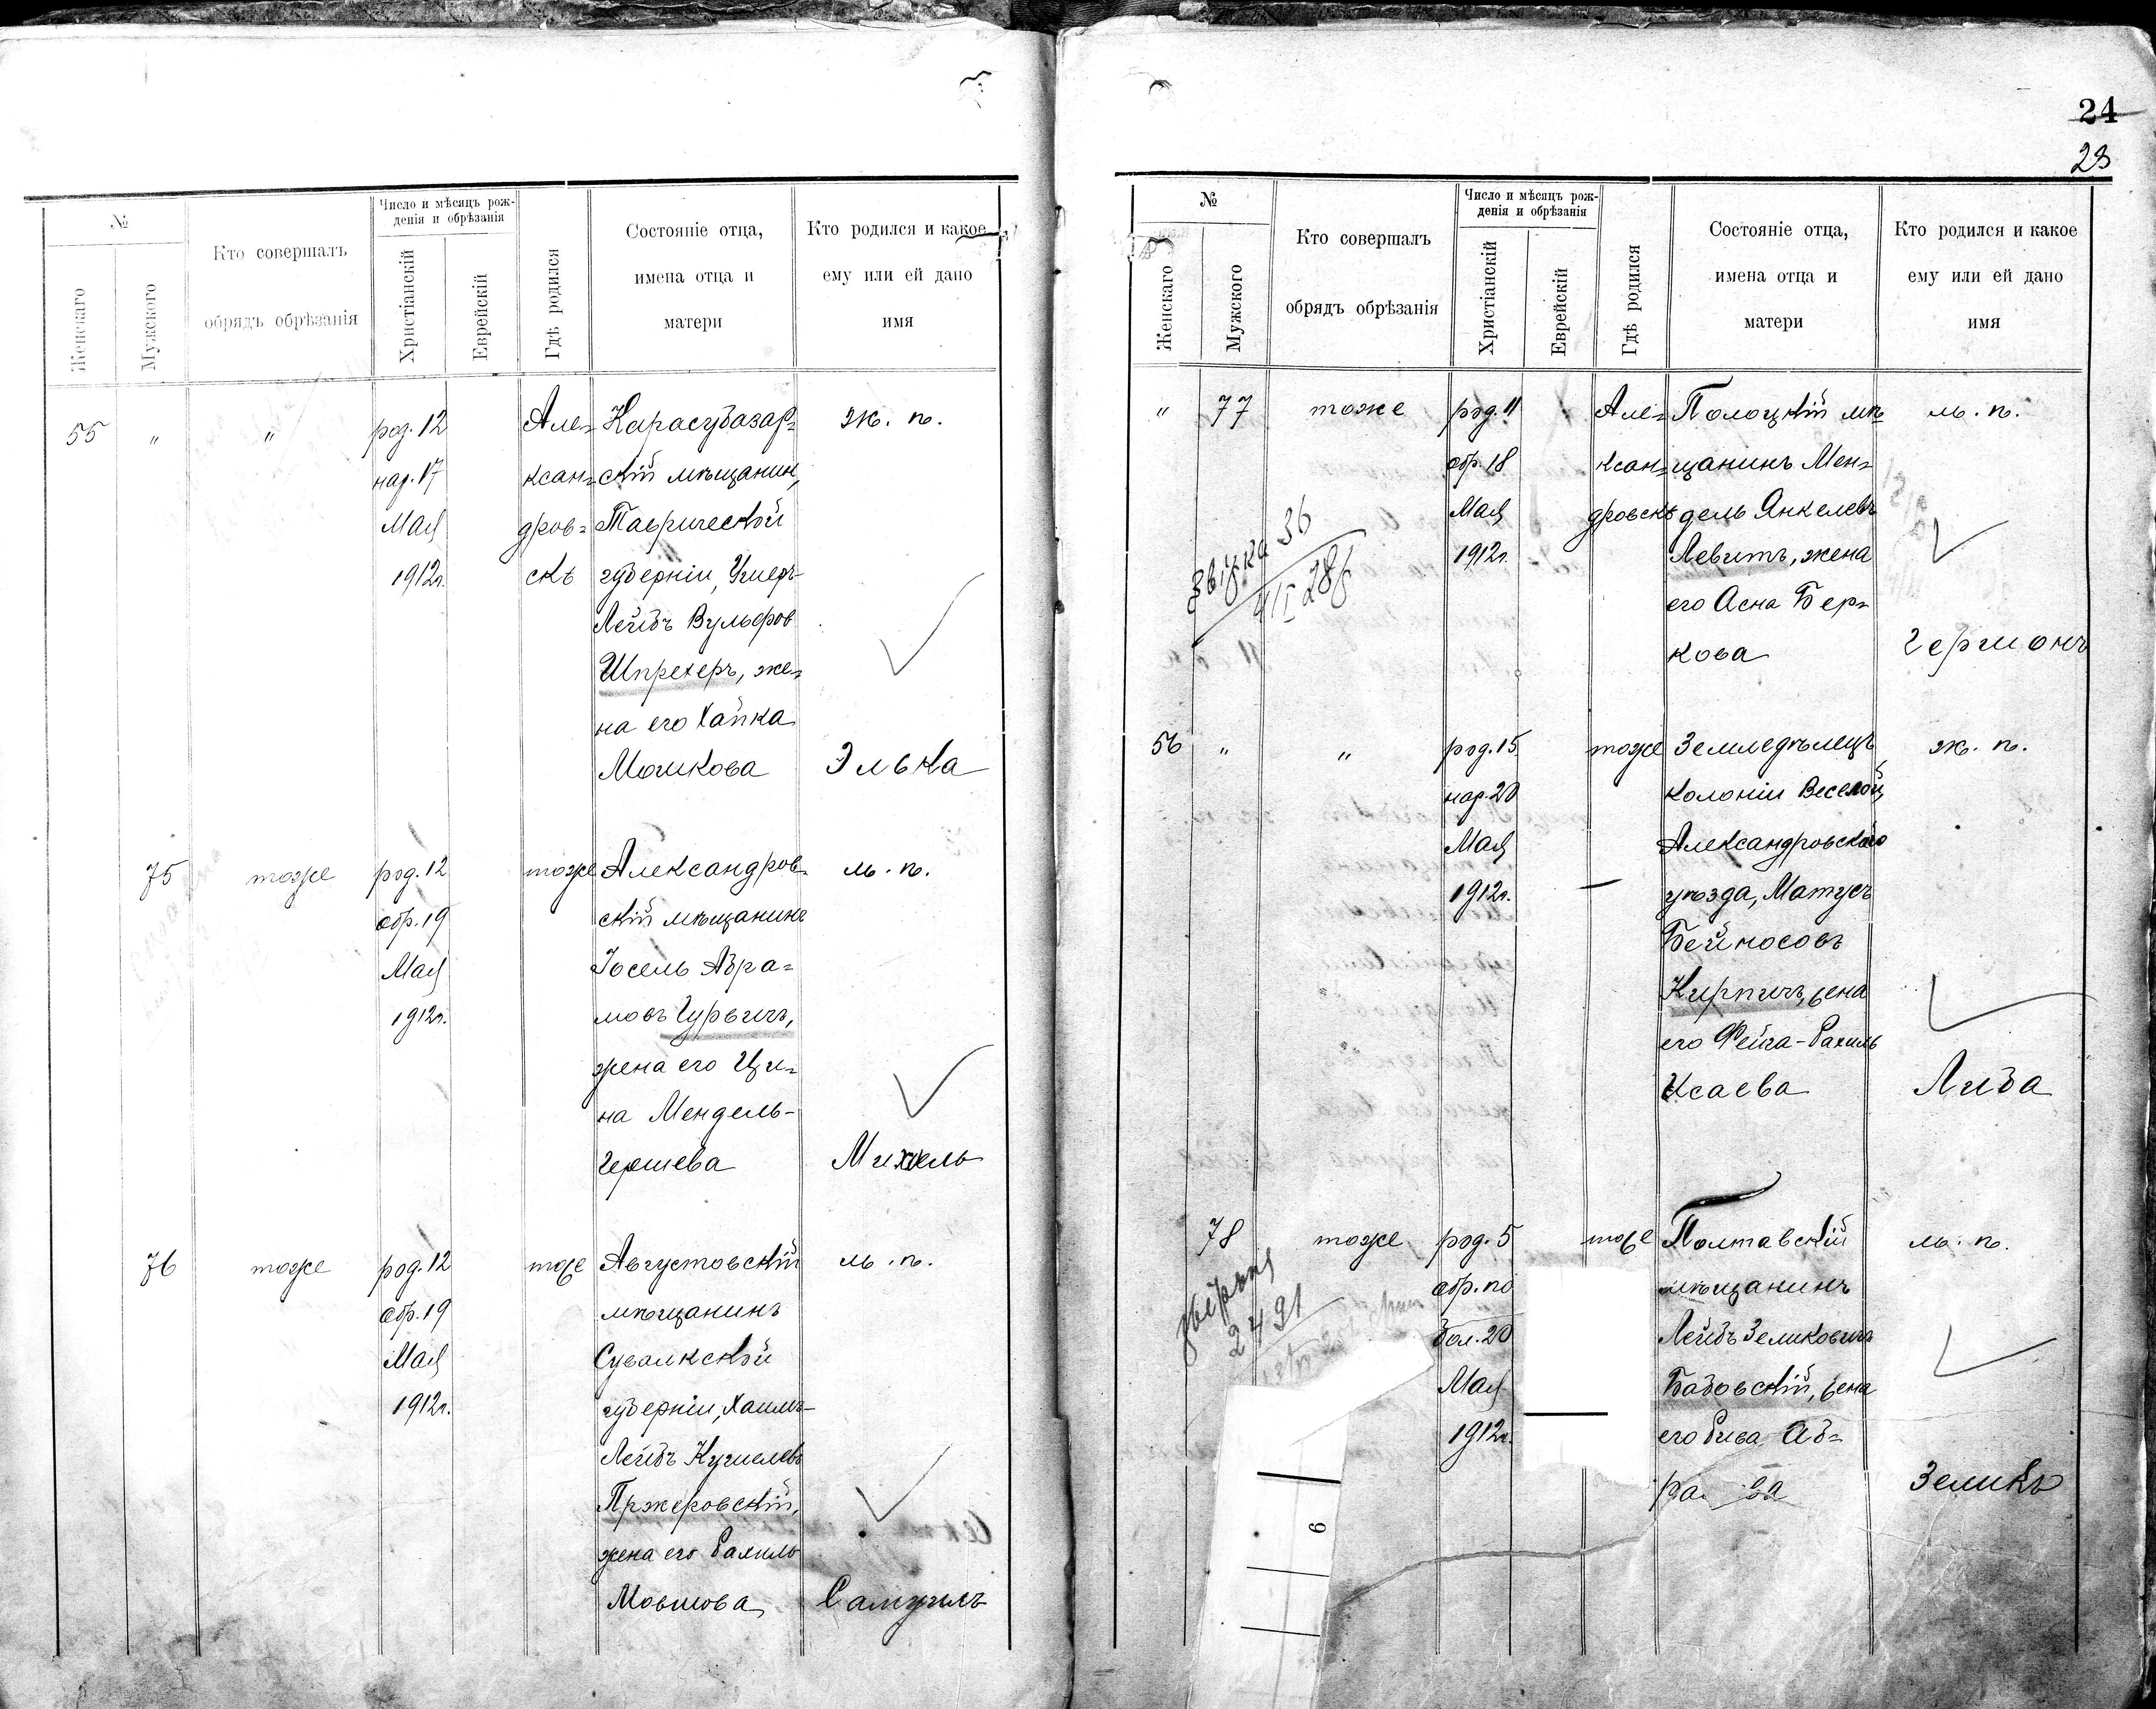 №
Женскаго
Мужского
Кто совершалъ
обрядъ обрѣзанія
Число и мѣсяцъ рож-
денія и обрѣзанія
Христіанскій
Еврейскій
Гдѣ родился
Состояніе отца,
имена отца и
матери
Кто родился и какое
ему или ей дано
имя
55 " " род. 12 Але= Карасубазар= ж. п.
нар. 17 ксан= скій мѣщанин,
Мая дров= Таврической
1912г. скѣ губерніи, Умеръ-
Лейбъ Вульфов
Шпрехеръ, же=
на его Хайка
Мошкова Элька
75 тоже род. 12 тоже Александров= м. п.
обр. 19 скій мѣщанинъ
Мая Іосель Абра=
1912г. мовъ Гурвичъ,
жена его Ци=
на Мендель-
Гершева Михель
76 тоже род. 12 тоже Августовскій м. п.
обр. 19 мѣщанинъ
Мая Сувалкской
1912г. губерніи, Хаимъ-
Лейбъ Кушелевъ
Пржеровскій,
жена его Рахиль
Мовшова Самуилъ
24
23
№
Женскаго
Мужского
Кто совершалъ
обрядъ обрѣзанія
Число и мѣсяцъ рож-
денія и обрѣзанія
Христіанскій
Еврейскій
Гдѣ родился
Состояніе отца,
имена отца и
матери
Кто родился и какое
ему или ей дано
имя
" 77 тоже род. 11 Але= Полоцкій мѣ= м. п.
обр. 18 ксан= щанинъ Мен=
Мая дровскѣ дель Янкелевъ
1912г. Левитъ, жена
36
его Асна Бер=
кова Гермонъ
56 " " род. 15 тоже Земледѣлецъ ж. п.
нар. 20 колоніи Веселой,
Мая Александровскаго
1912г. уѣзда, Матусъ
Бейносовъ
Кирпичъ, жена
его Фейга-Рахиль
Исаева Либа
78 тоже род. 5 тоже Полтавскій м. п.
обр. по мѣщанинъ
2491
бол. 20 Лейбъ Зеликовичъ
Мая Бабовскій, жена
1912г. его Рива Аб=
ра ва Зеликъ
6